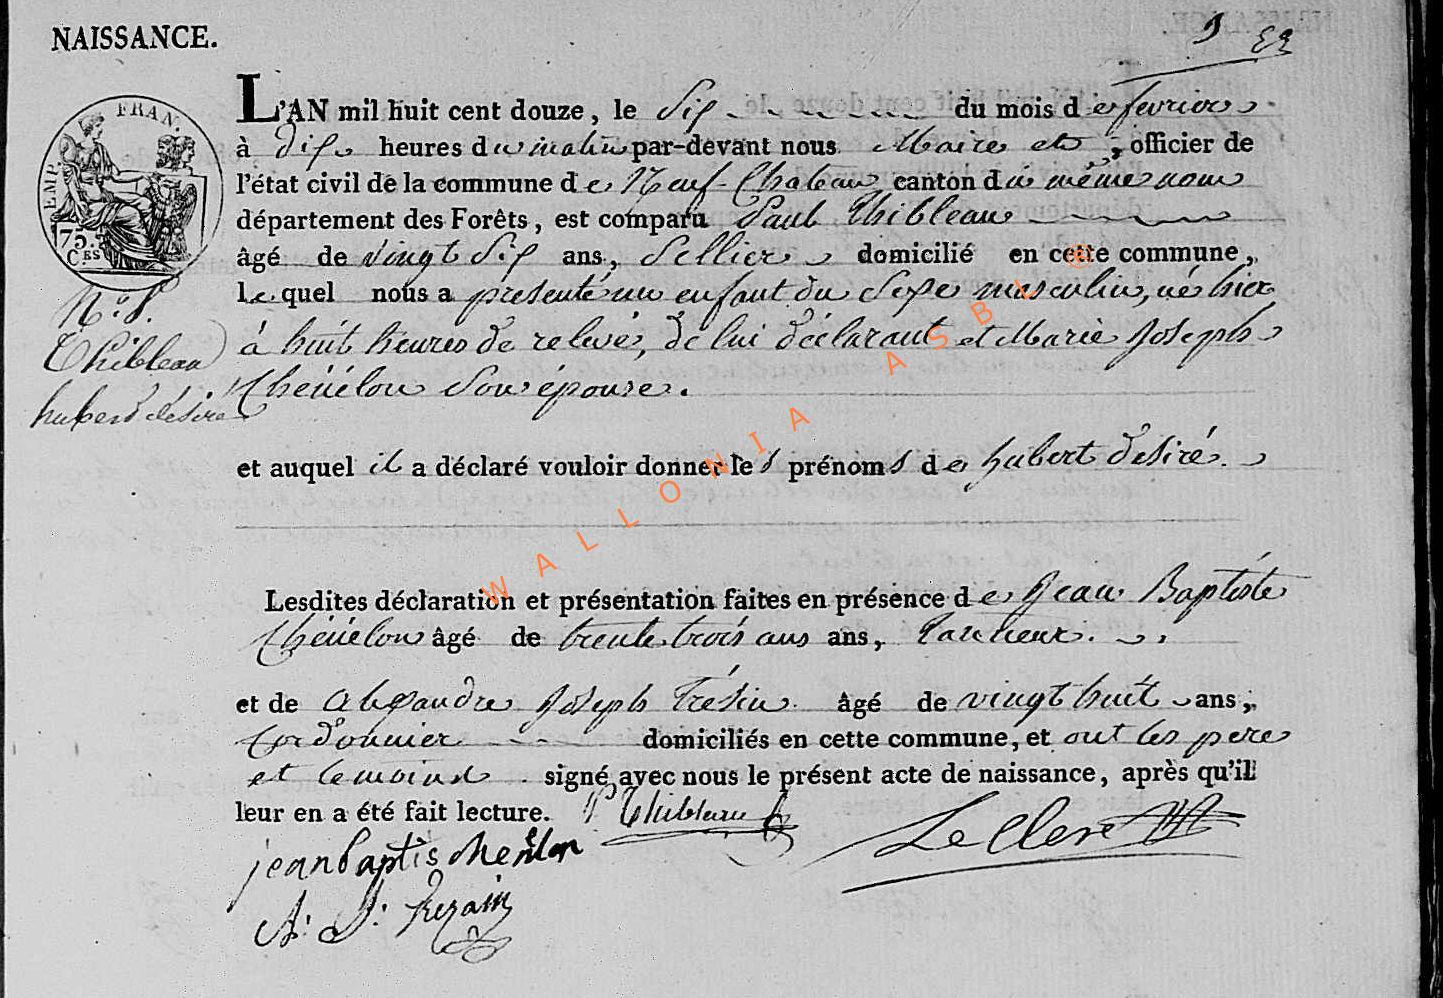 NAISSANCE.
5
EMP. FRAN.
75.
CES
L'AN mil huit cent douze, le Six du mois de fevrier
à dix heures du matin par-devant nous Maire et, officier de
l'état civil de la commune de Neuf-Chateau canton du même nom
département des Forêts, est comparu Paul Thibleau
âgé de vingt Six ans, Sellier domicilié en cette commune,
lequel nous a presenté un enfant du Sexe masculin, né hier
à huit heures de relevée, de lui déclarant et Marie Joseph
Son épouse.
N.o 8.
Thibleau
hubert desiré
et auquel il a déclaré vouloir donner les prénoms de hubert Desiré.
Lesdites déclaration et présentation faites en présence de Jean Baptiste
âgé de trente trois ans ans,
et de Alexandre Joseph âgé de vingt huit ans,
Cordonnier domiciliés en cette commune, et ont les pere
et temoins signé avec nous le présent acte de naissance, après qu'il
leur en a été fait lecture. P Thibleau
LeClerc
jean baptis
A. J.
WALLONIA ASBL ©